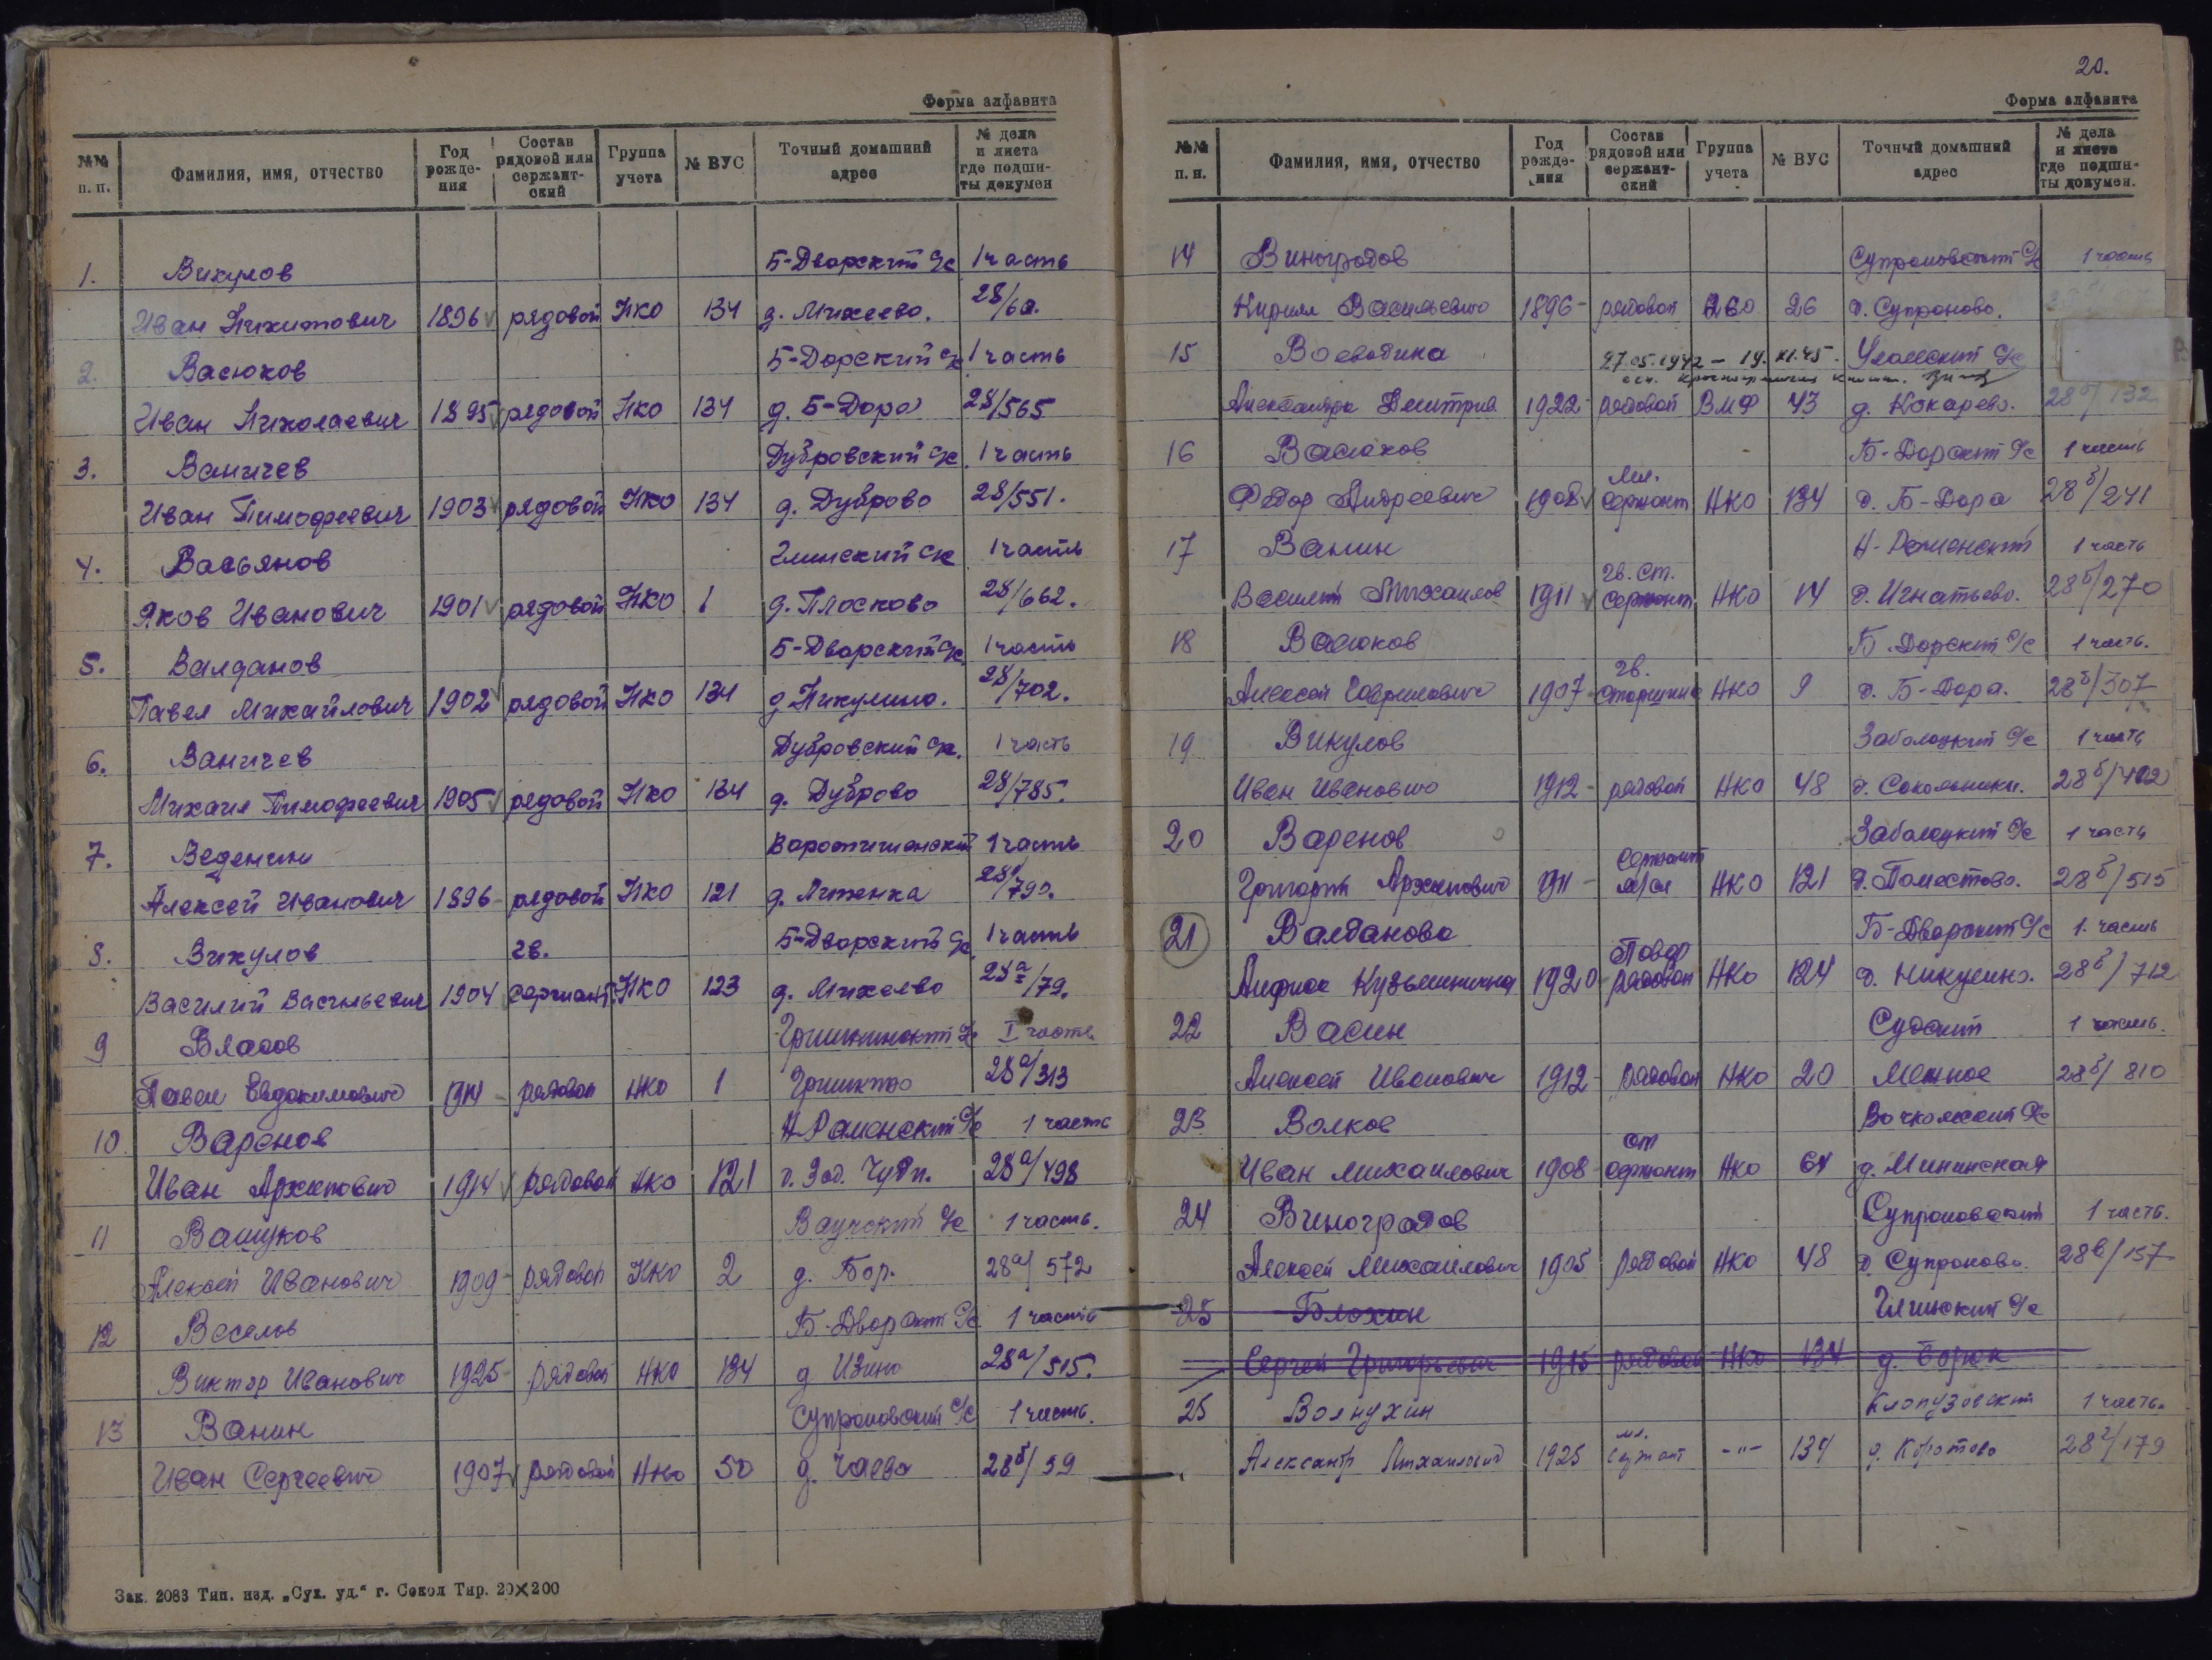 Форма алфавита
№№ п. п. Фамилия, имя, отчество Год рожде-ния Состав рядовой или сержант-ский Группа учета № ВУС Точный домашний адрес № дела и листа где подши-ты докумен
1. Викулов Б-Дворский с/с 1 часть
Иван Никитович 1896 рядовой НКО 134 д. Михеево. 28/60.
2. Васюков Б-Дорский с/с 1 часть
Иван Николаевич 1895 рядовой НКО 134 д. Б-Дора 28/565
3. Ваничев Дубровский с/с 1 часть
Иван Тимофеевич 1903 рядовой НКО 134 д. Дуброво 28/551.
4. Васьянов Глинский с/с 1 часть
Яков Иванович 1901 рядовой НКО 1 д. Плосково 28/662.
5. Валданов Б-Дворский с/с 1 часть
Павел Михайлович 1902 рядовой НКО 134 д. Никулино. 28/702.
6. Ваничев Дубровский с/с. 1 часть
Михаил Тимофеевич 1905 рядовой НКО 134 д. Дуброво 28/785.
7. Веденин 1 часть
Алексей Иванович 1896 рядовой НКО 121 28/790.
8. Викулов гв. Б-Дворский с/с 1 часть
Василий Васильевич 1904 сержант НКО 123 д. Михеево 28а/79.
9 Власов Гришкинский с/с I часть
Павел Евдокимович 1914 - рядовой НКО 1 Гришкино 28а/313
10. Варенов Н Раменский с/с 1 часть
Иван Архипович 1914 рядовой НКО 121 28а/498
11 Вашуков Ваучский с/с 1 часть.
Алексей Иванович 1909 - рядовой НКО 2 д. Бор. 28а/572
12 Веселов Б-Дворский с/с 1 часть
Виктор Иванович 1925 - рядовой НКО 134 д Изино 28а/515.
13 Ванин Супроновский с/с 1 часть.
Иван Сергеевич 1907 рядовой НКО 50 д. Чаево 28б/59
Зак. 2083 Тип. изд. „Сух. уд.“ г. Сокол Тир. 20×200
20.
Форма алфавита
№№ п. п. Фамилия, имя, отчество Год рожде-ния Состав рядовой или сержант-ский Группа учета № ВУС Точный домашний адрес № дела и листа где подши-ты докумен.
14 Виноградов Супроновский с/с 1 часть
Кирилл Васильевич 1896 - рядовой 26 д. Супроново.
15 Воеводина 27.05.1942 - 19.XI.45. Уломский с/с
Александра Дмитрие 1922 - рядовой ВМФ 43 д. Кокарево. 28б/132
16 Васюков Б-Дорский с/с 1 часть
Мл.
Федор Андреевич 1908 сержант НКО 134 д. Б-Дора 28б/241
17 Ванин Н-Раменский 1 часть
гв. ст.
Василий Михайлов 1911 сержант НКО 14 д. Игнатьево. 28б/270
18 Васюков Б.Дорский с/с 1 часть.
гв.
Алексей Гаврилович 1907 - старшина НКО 9 д. Б-Дора. 28б/507
19 Викулов Заболоцкий с/с 1 часть
Иван Иванович 1912 - рядовой НКО 48 д. Сокольники. 28б/402
20 Варенов Заболоцкий с/с 1 часть
сержант
Григорий Архипович 1911 - м/сл НКО 121 д. Поместово. 28б/515
21 Валданова Б-Дворский с/с 1. часть
Повар
Анфиса Кузьминична 1920 - рядовой НКО 124 д. Никулино. 28б/712
22 Васин Судский 1 часть.
Алексей Иванович 1912 - рядовой НКО 20 Межное 28б/810
23 Волков
ст
Иван Михайлович 1908 - сержант НКО 64 д. Мининская
24 Виноградов Супроновский 1 часть.
Алексей Михайлович 1905 рядовой НКО 48 д. Супроново. 28в/157
25 Блохин Глинский с/с
Сергей Григорьевич 1915 рядовой НКО 134 д. Борок
25 Волнухин Клопузовский 1 часть.
мл.
Александр Михайлович 1925 сержант -"- 134 д. Коротово 28г/179